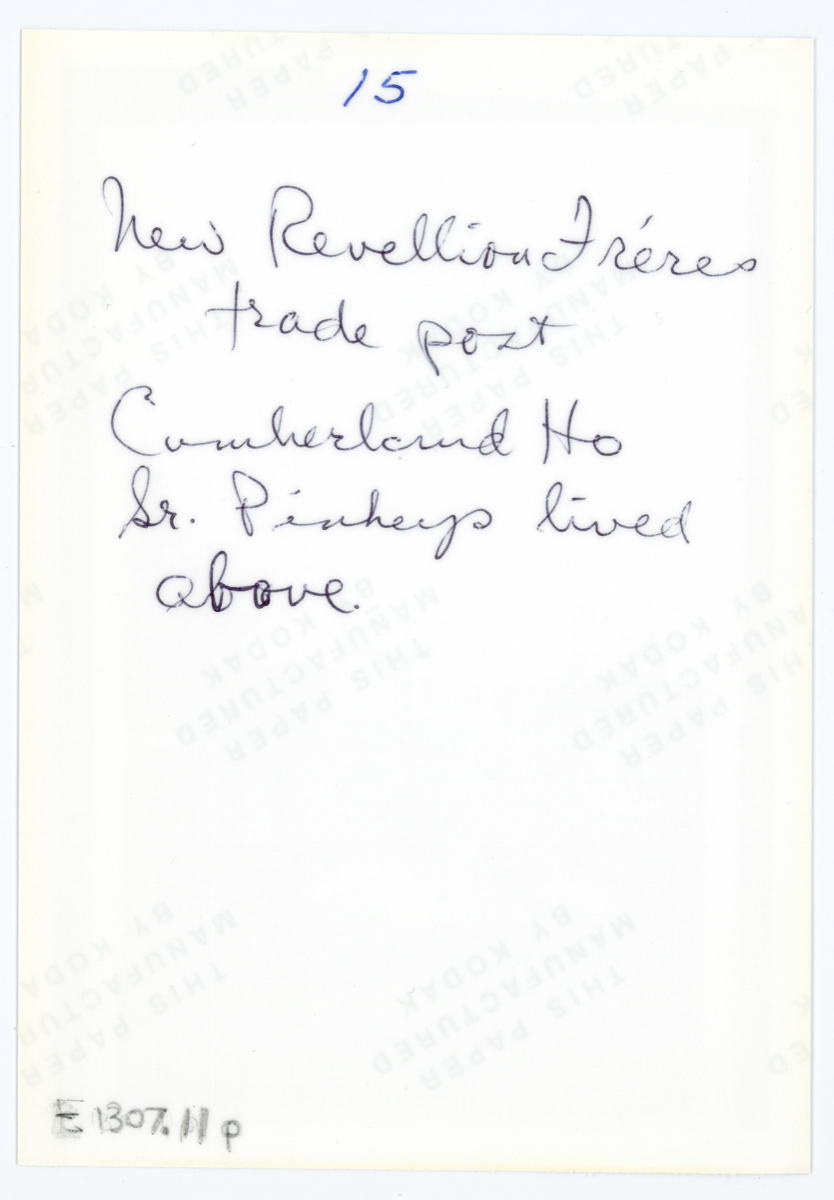 15
New Revellion Fréres
trade post
Cumberland Ho
Sr. Pinkeys lived
above.
E 1307.11 p
THIS PAPER
MANUFACTURED
BY KODAK